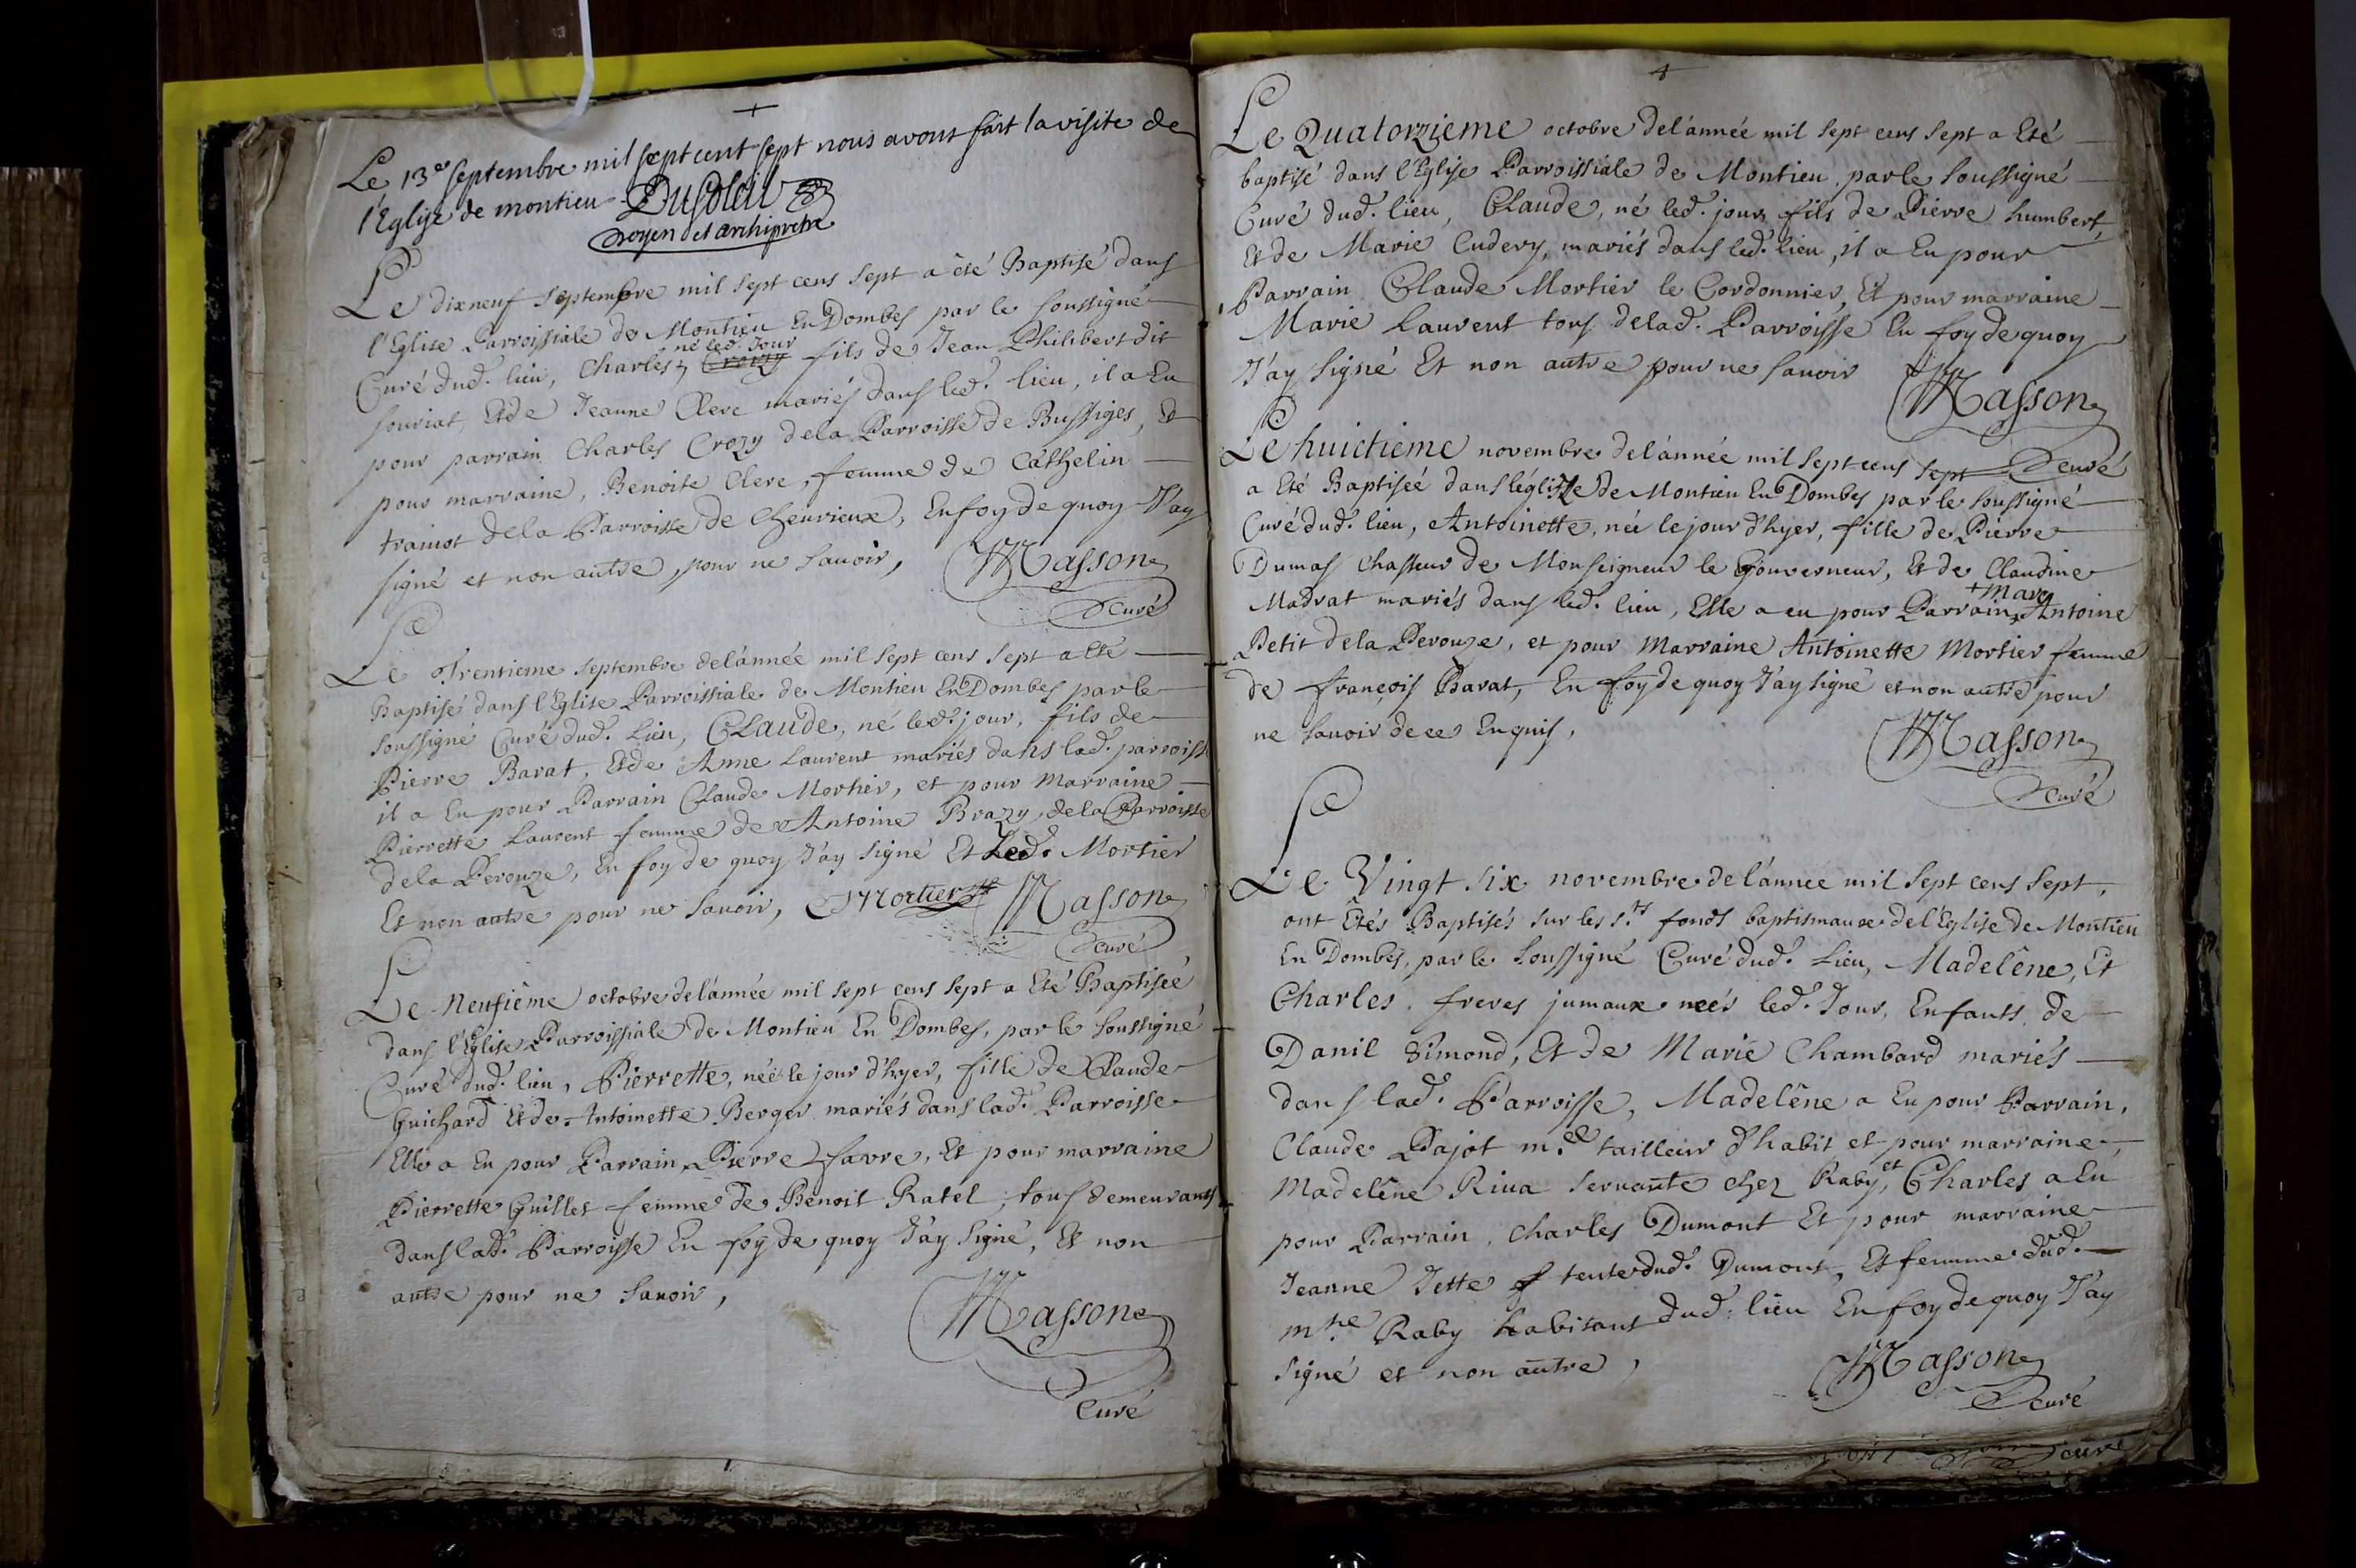 Le 13e septembre mil sept cent sept nous avons fait la visite de
l'Eglise de montieu DuSoleil
Doyen et archiprêtre
Le dixneuf septembre mil sept cens sept a été Baptisé dans
l'Eglise Parroissiale de Montieu En Dombes par le soussigné
né led. Jour
Curé dud. lieu, Charles, Crozy fils de Jean Philibert dit
souriat, Et de Jeanne Clere mariés dans led. lieu, il a Eu
pour parrain Charles Crozy de la Parroisse de Bussiges, Et
pour marraine, Benoite Clere, femme de Cathelin
trainot de la Parroisse de Cheurieux, En foy de quoy J'ay
signé et non autre, pour ne sauoir, Masson
Curé
Le Trentieme septembre de l'année mil sept cens sept a Eté
Baptisé dans l'Eglise Parroissiale de Montieu En Dombes par le
soussigné Curé dud. Lieu, Claude, né led. jour, fils de
Pierre Barat, Et de Anne Laurent mariés dans lad. parroisse
il a Eu pour Parrain Claude Mortier, et pour marraine
Pierrette Laurent femme de Antoine Brazy, de la Parroisse
de la Perouze, En foy de quoy J'ay signé Et Led. Mortier
Et non autre pour ne sauoir, Mortier Masson
Curé
Le Neufième octobre de l'année mil sept cens sept a Eté Baptisée
dans l'Eglise Parroissiale de Montieu En Dombes, par le soussigné
Curé dud. lieu, Pierrette, née le jour d'hyer, fille de Claude
Guichard Et de Antoinette Berger mariés dans lad. Parroisse
Elle a Eu pour Parrain Pierre Favre, Et pour marraine
Pierrette Guillet femme de Benoit Ratel, tous demeurants
dans lad. Parroisse En foy de quoy J'ay signé, Et non
autre pour ne sauoir,
Masson
Curé
Le Quatorzieme octobre de l'année mil sept cens sept a Eté
baptisé dans l'Eglise Parroissiale de Montieu par le soussigné
Curé dud. lieu, Claude, né led. jour fils de Pierre humbert,
Et de Marie Cudery, mariés dans led. lieu, il a Eu pour
Parrain Claude Mortier le Cordonnier, Et pour marraine
Marie Laurent tous de lad. Parroisse En foy de quoy
J'ay signé Et non autre pour ne sauoir Masson
Curé
Le huictieme novembre de l'année mil sept cens sept
a Eté Baptisée dans léglise de Montieu En Dombes par le soussigné
Curé dud. lieu, Antoinette, née le jour d'hyer, fille de Pierre
Dumas chasseur de Monseigneur le Gouverneur, Et de Claudine
+ Marc
Madrat mariés dans led. lieu, Elle a eu pour Parrain, Antoine
Petit de la Perouze, et pour Marraine Antoinette Mortier femme
de françois Barat, En foy de quoy J'ay signé et non autre pour
ne sauoir de ce Enquis,
Masson
Curé
Le Vingt six novembre de l'année mil sept cens sept,
ont Étés Baptisés sur les s.ts fonds baptismaux de l'Eglise de Montieu
En Dombes, par le soussigné Curé dud. Lieu, Madelêne, Et
Charles, freres jumaux neés led. Jour, Enfants de
Danil Simond, Et de Marie Chambard mariés
dans lad. Parroisse, Madelêne a Eu pour Parrain,
Claude Pajot m.e tailleur d'habit et pour marraine,
Madelêne Riua seruante chez Raby, et Charles a Eu
pour Parrain, Charles Dumont Et pour marraine
Jeanne Jette tente dud. Dumont, Et femme dud.
m.re Raby habitans dud. lieu En foy de quoy J'ay
signé et non autre,
Masson
Curé